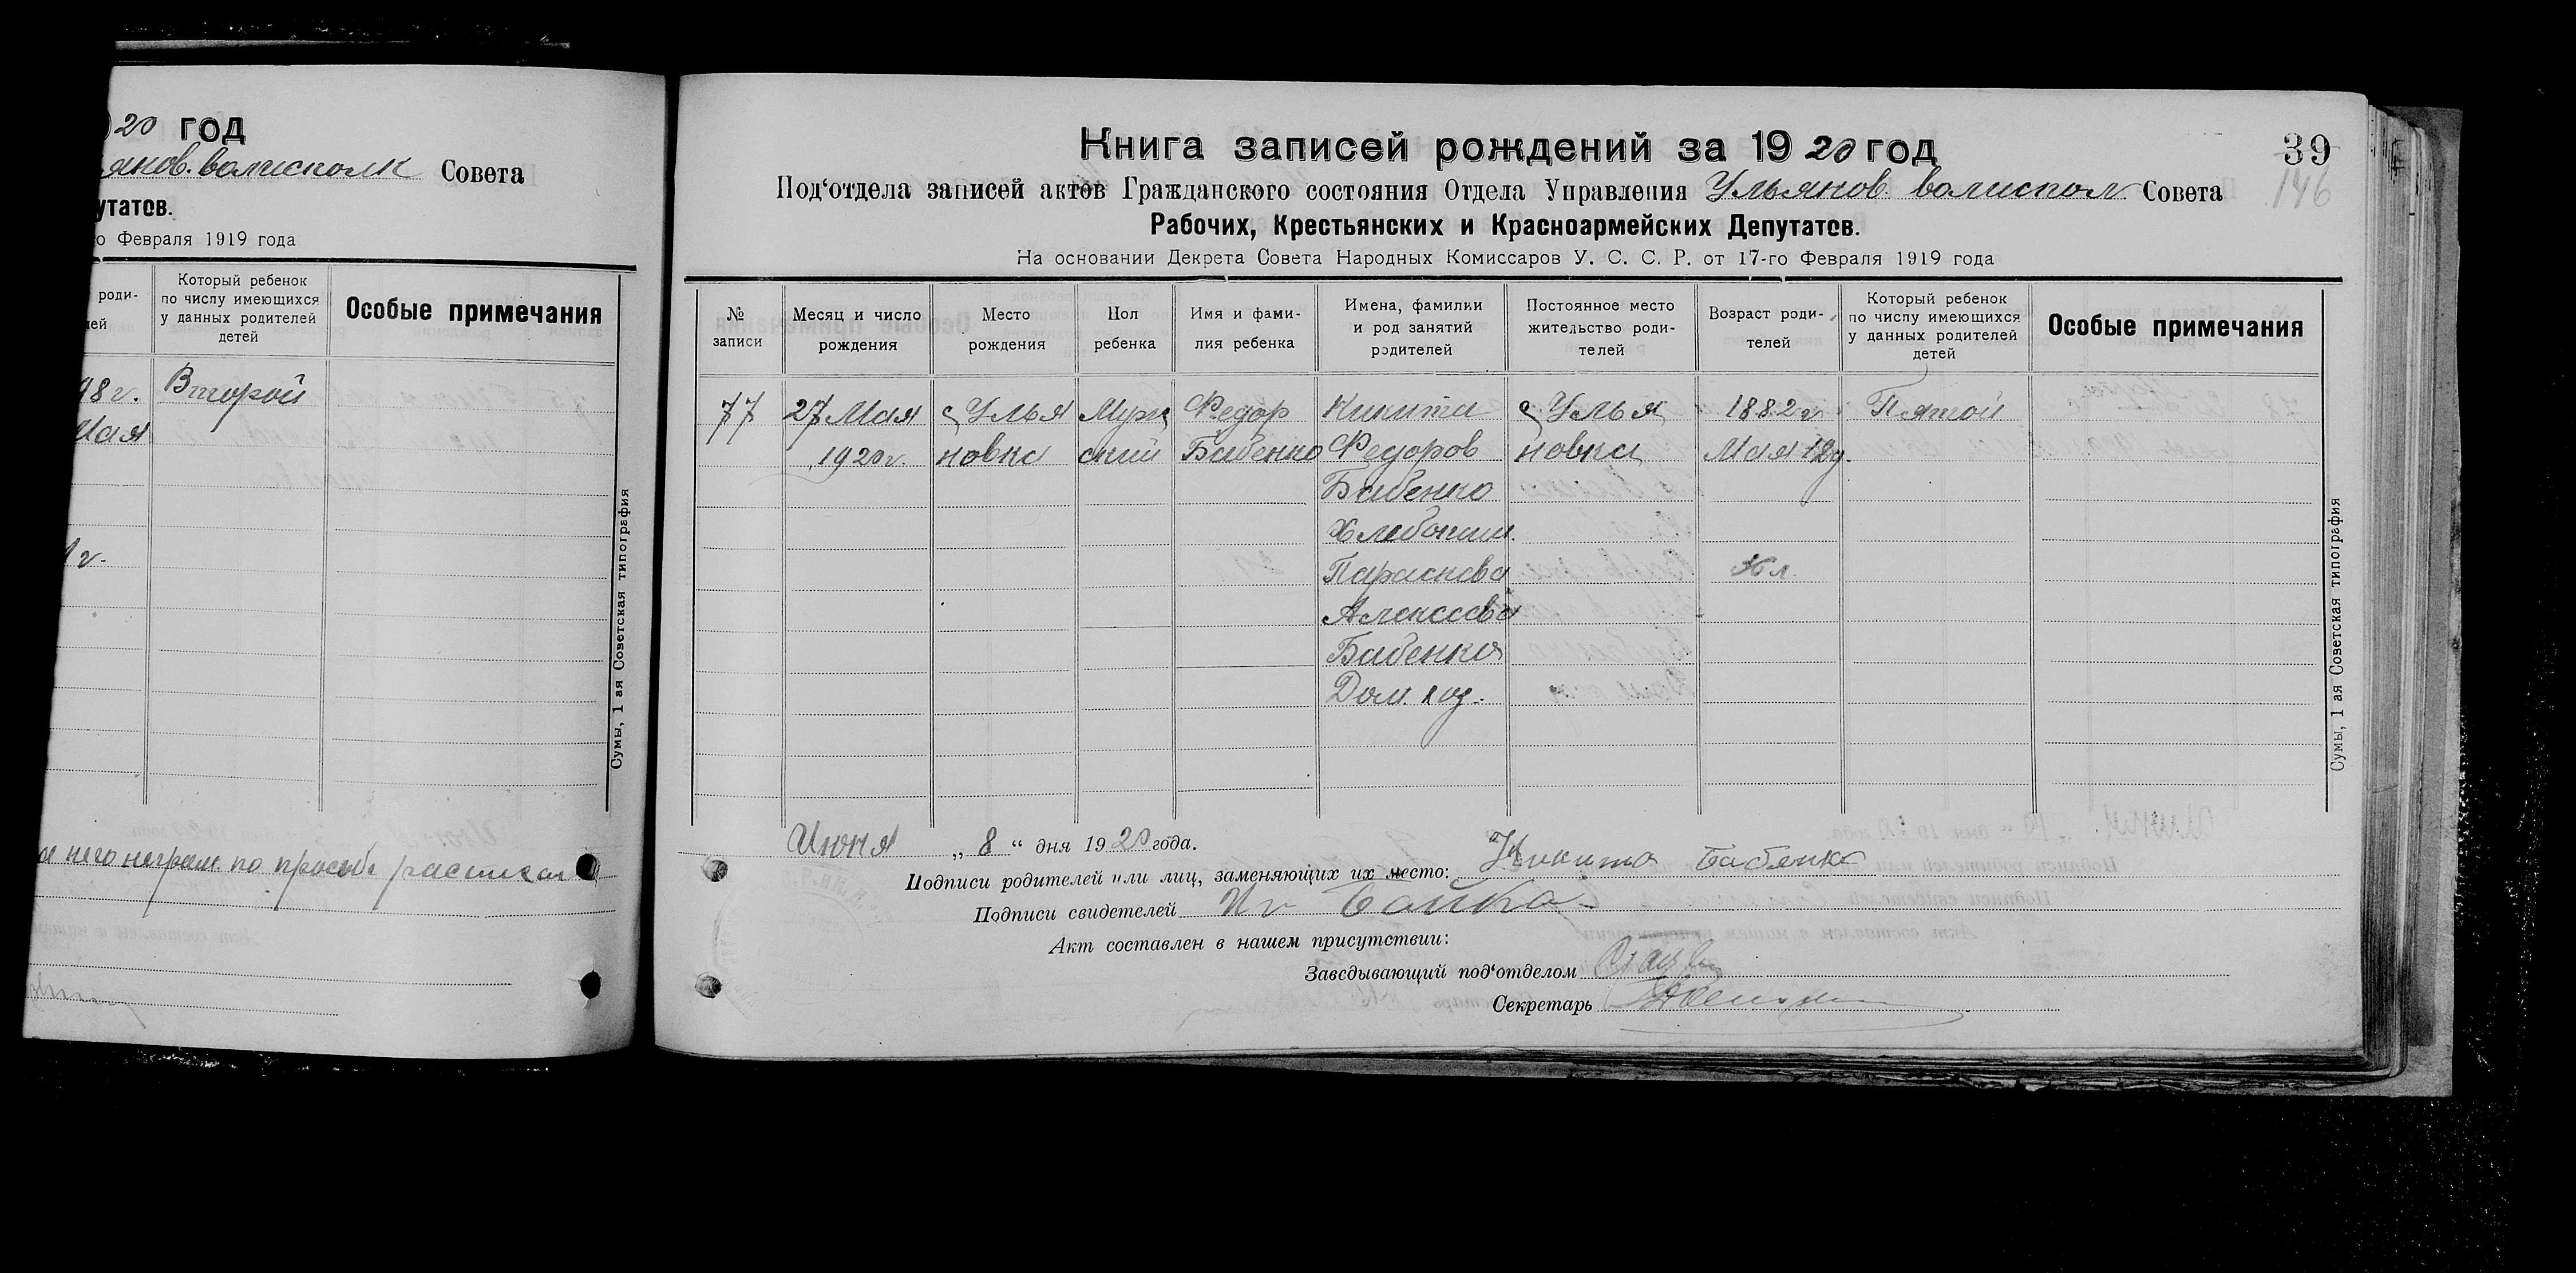 20 год
янов. волисполк Совета
утатов.
о Февраля 1919 года
роди-
лей
Который ребенок
по числу имеющихся
у данных родителей
детей
Особые примечания
98 г.
Второй
Мая
1 г.
него неграм. по просьбе
Сумы, 1 ая Советская типография
Книга записей рождений за 1920 год
39
146
Под‘отдела записей актов Гражданского состояния Отдела Управления Ульянов. волиспол Совета
Рабочих, Крестьянских и Красноармейских Депутатов.
На основании Декрета Совета Народных Комиссаров У. С. С. Р. от 17-го Февраля 1919 года
№
записи
Месяц и число
рождения
Место
рождения
Пол
ребенка
Имя и фами-
лия ребенка
Имена, фамилии
и род занятий
родителей
Постоянное место
жительство роди-
телей
Возраст роди-
телей
Который ребенок
по числу имеющихся
у данных родителей
детей
Особые примечания
77
27 Мая
1920 г.
с Улья
новка
Муж
ский
Федор
Бабенко
Никита
Федоров
Бабенко
Хлебопаш.
Параскева
Алексеева
Бабенко
Дом. хоз.
с Улья
новка
1882 г
Мая 12 д.
Пятой
Июня „ 8 “ дня 1920 года.
Подписи родителей или лиц, заменяющих их место: Никита Бабенко
Подписи свидетелей
Акт составлен в нашем присутствии:
Заведывающий под‘отделом
Секретарь
Сумы, 1 ая Советская типография